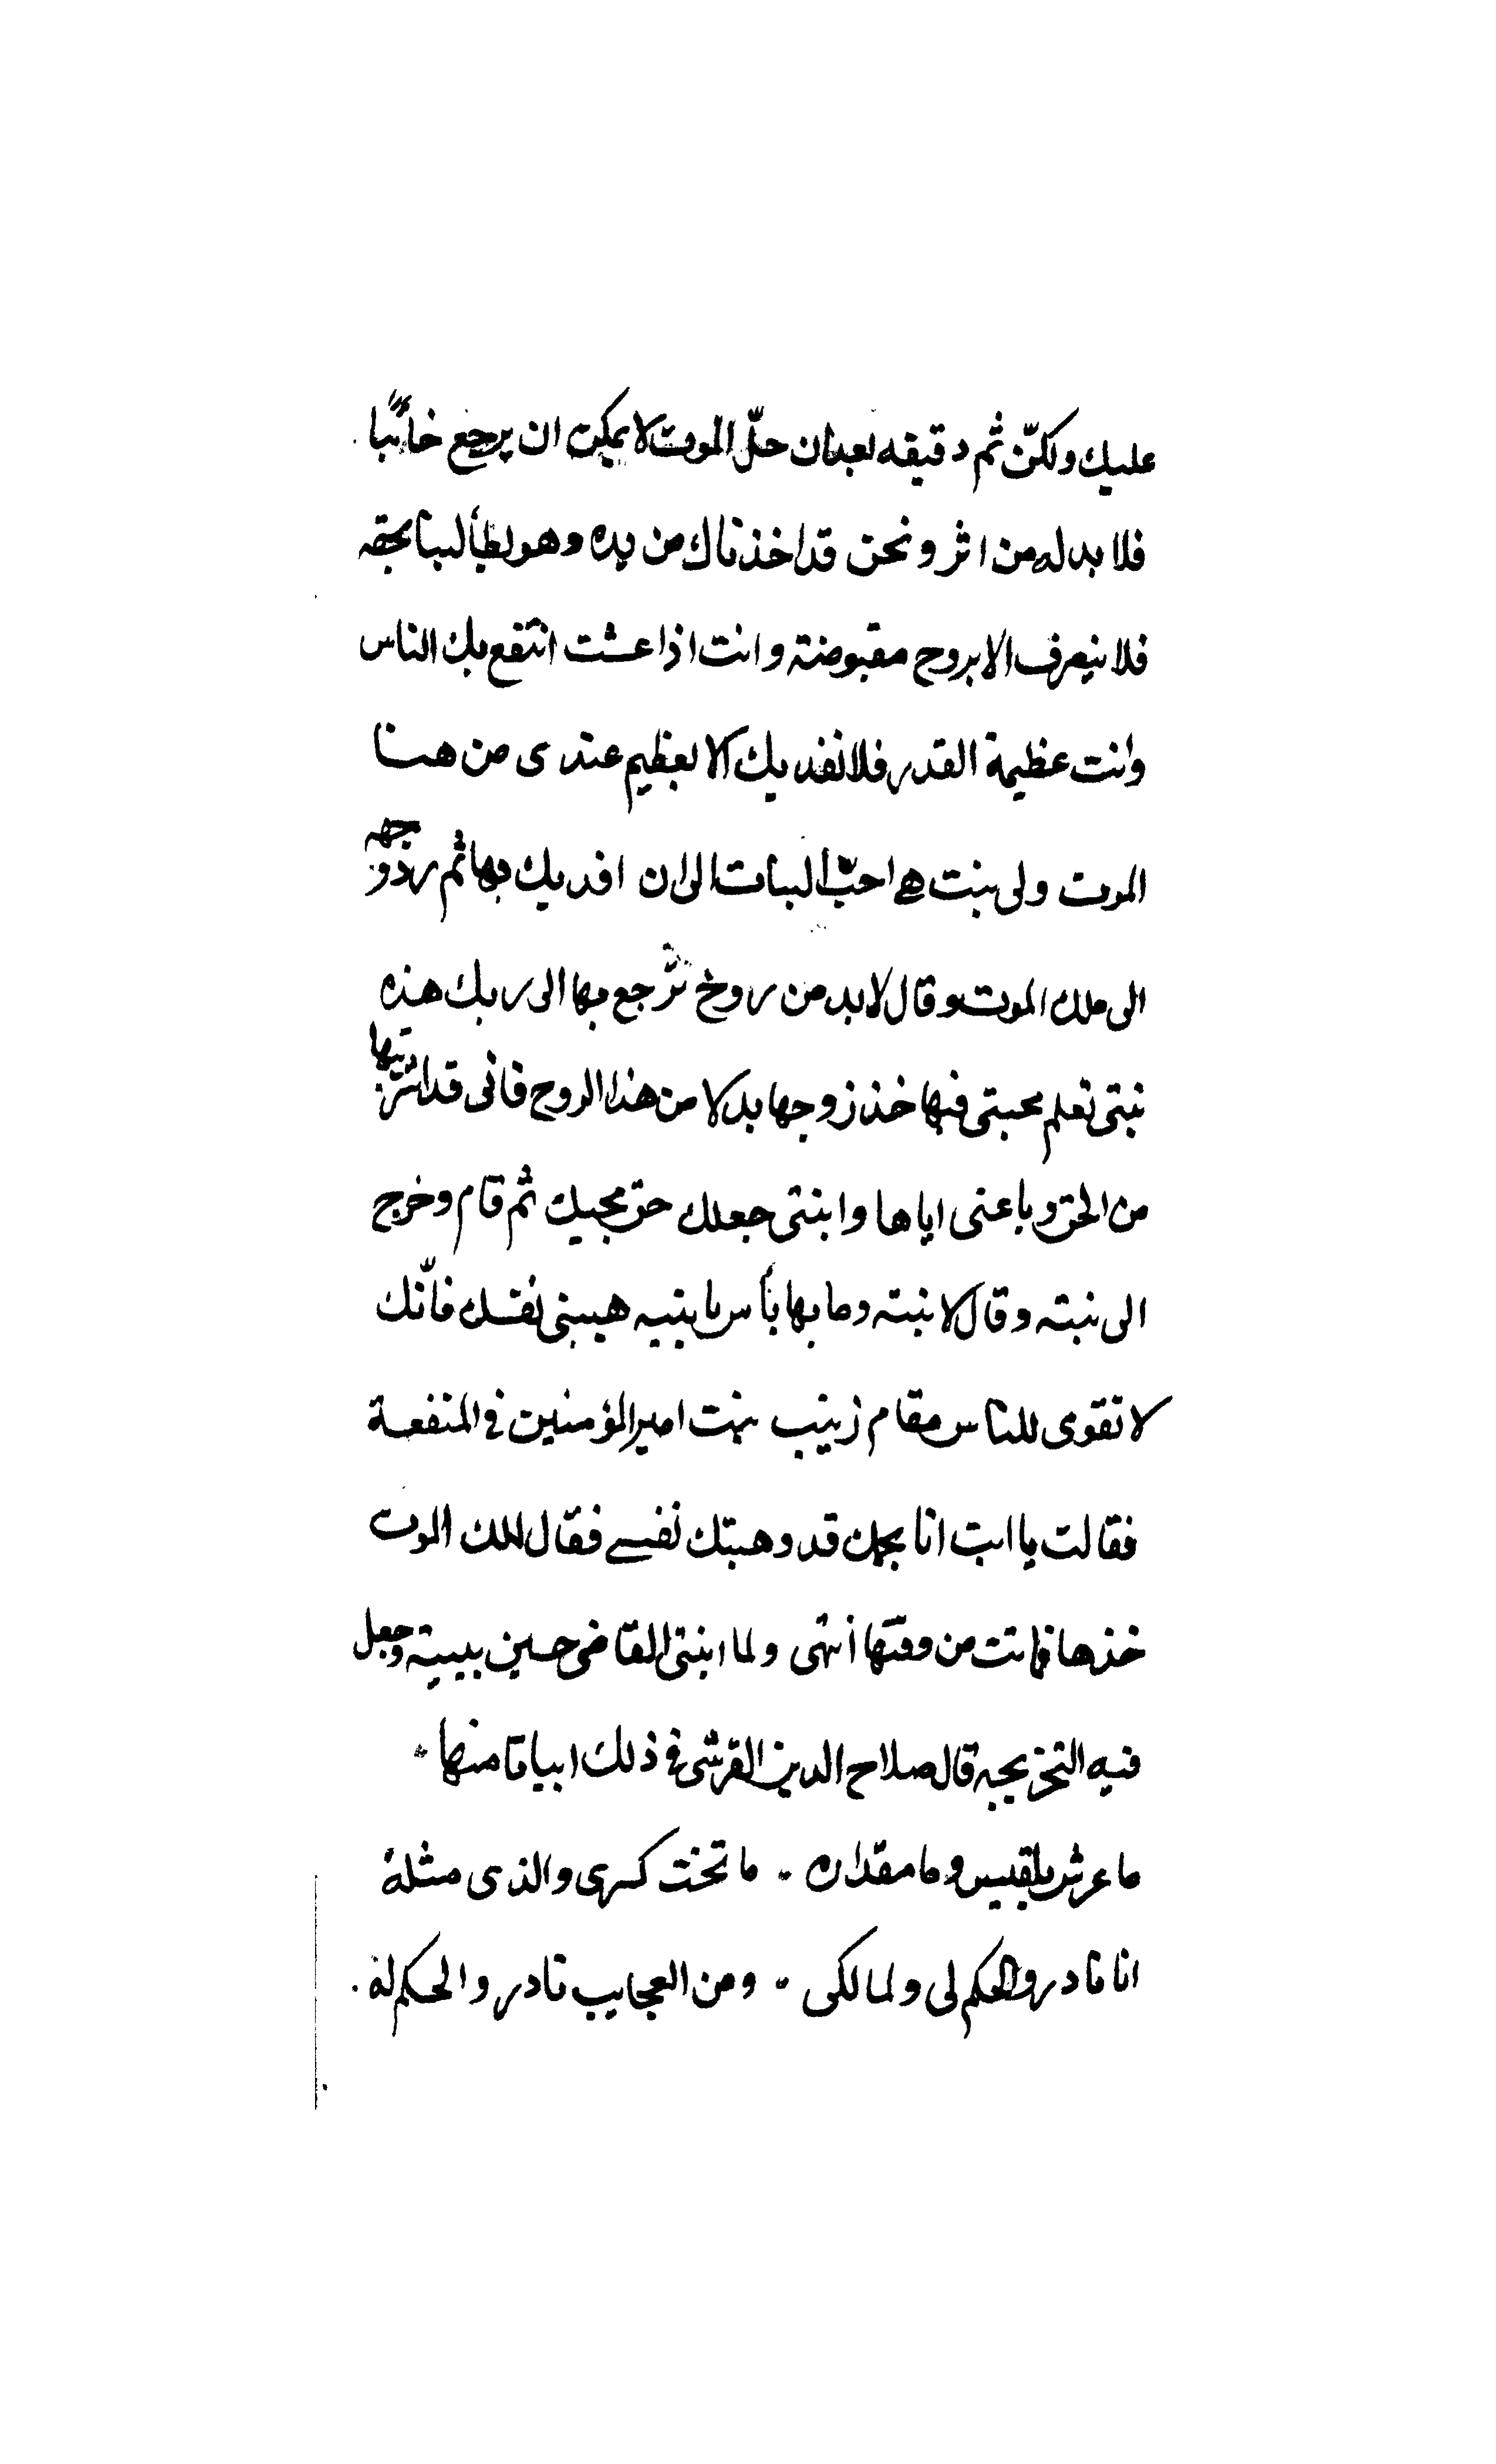 عليك ولكنّ ثم دقيقه بعد ان حلّ الموت لا يمكن ان يرجع خائبًا
فلا بد له من اثر ونحن قد اخذناك من يده وهو يطالبنا بحقه
فلا ينصرف الا بروح مقبوضة وانت اذا عشت انتفع بك الناس
وانت عظيمة القدر فلا نفديك الا بعظيم عندى من هنا
الموت ولى بنت هى احبّ البنات الى ان افديك بها ثم رد وجهه
الى ملك الموت وقال لا بد من روح ترجع بها الى ربك هذه
بنتى تعلم محبتى فيها خذ زوجها بدلا من هذا الروح فانى قد اشتريتها
من الحق وباعنى اياها وابنتى جعلك حق مجيك ثم قام وخرج
الى بنته وقال لابنته وما بها بأس يا بنيه هبينى نفسك فانّك
لا تقوى للناس مقام زينب بنت امير المؤمنين فى المنفعة
فقالت يا ابت انا بحكمك قد وهبتك نفسى فقال لملك الموت
خذها فماتت من وقتها انتهى ولما ابتنى القاضى حسين ببيته وجعل
فيه التخزيجه قال صلاح الدين القرشى فى ذلك ابياتا منها
ما عرش بلقيس وما مقداره ما تخت كسرى والذى مثله
انا نادر والحكم لى ولمالكى ومن العجايب نادر والحكم له